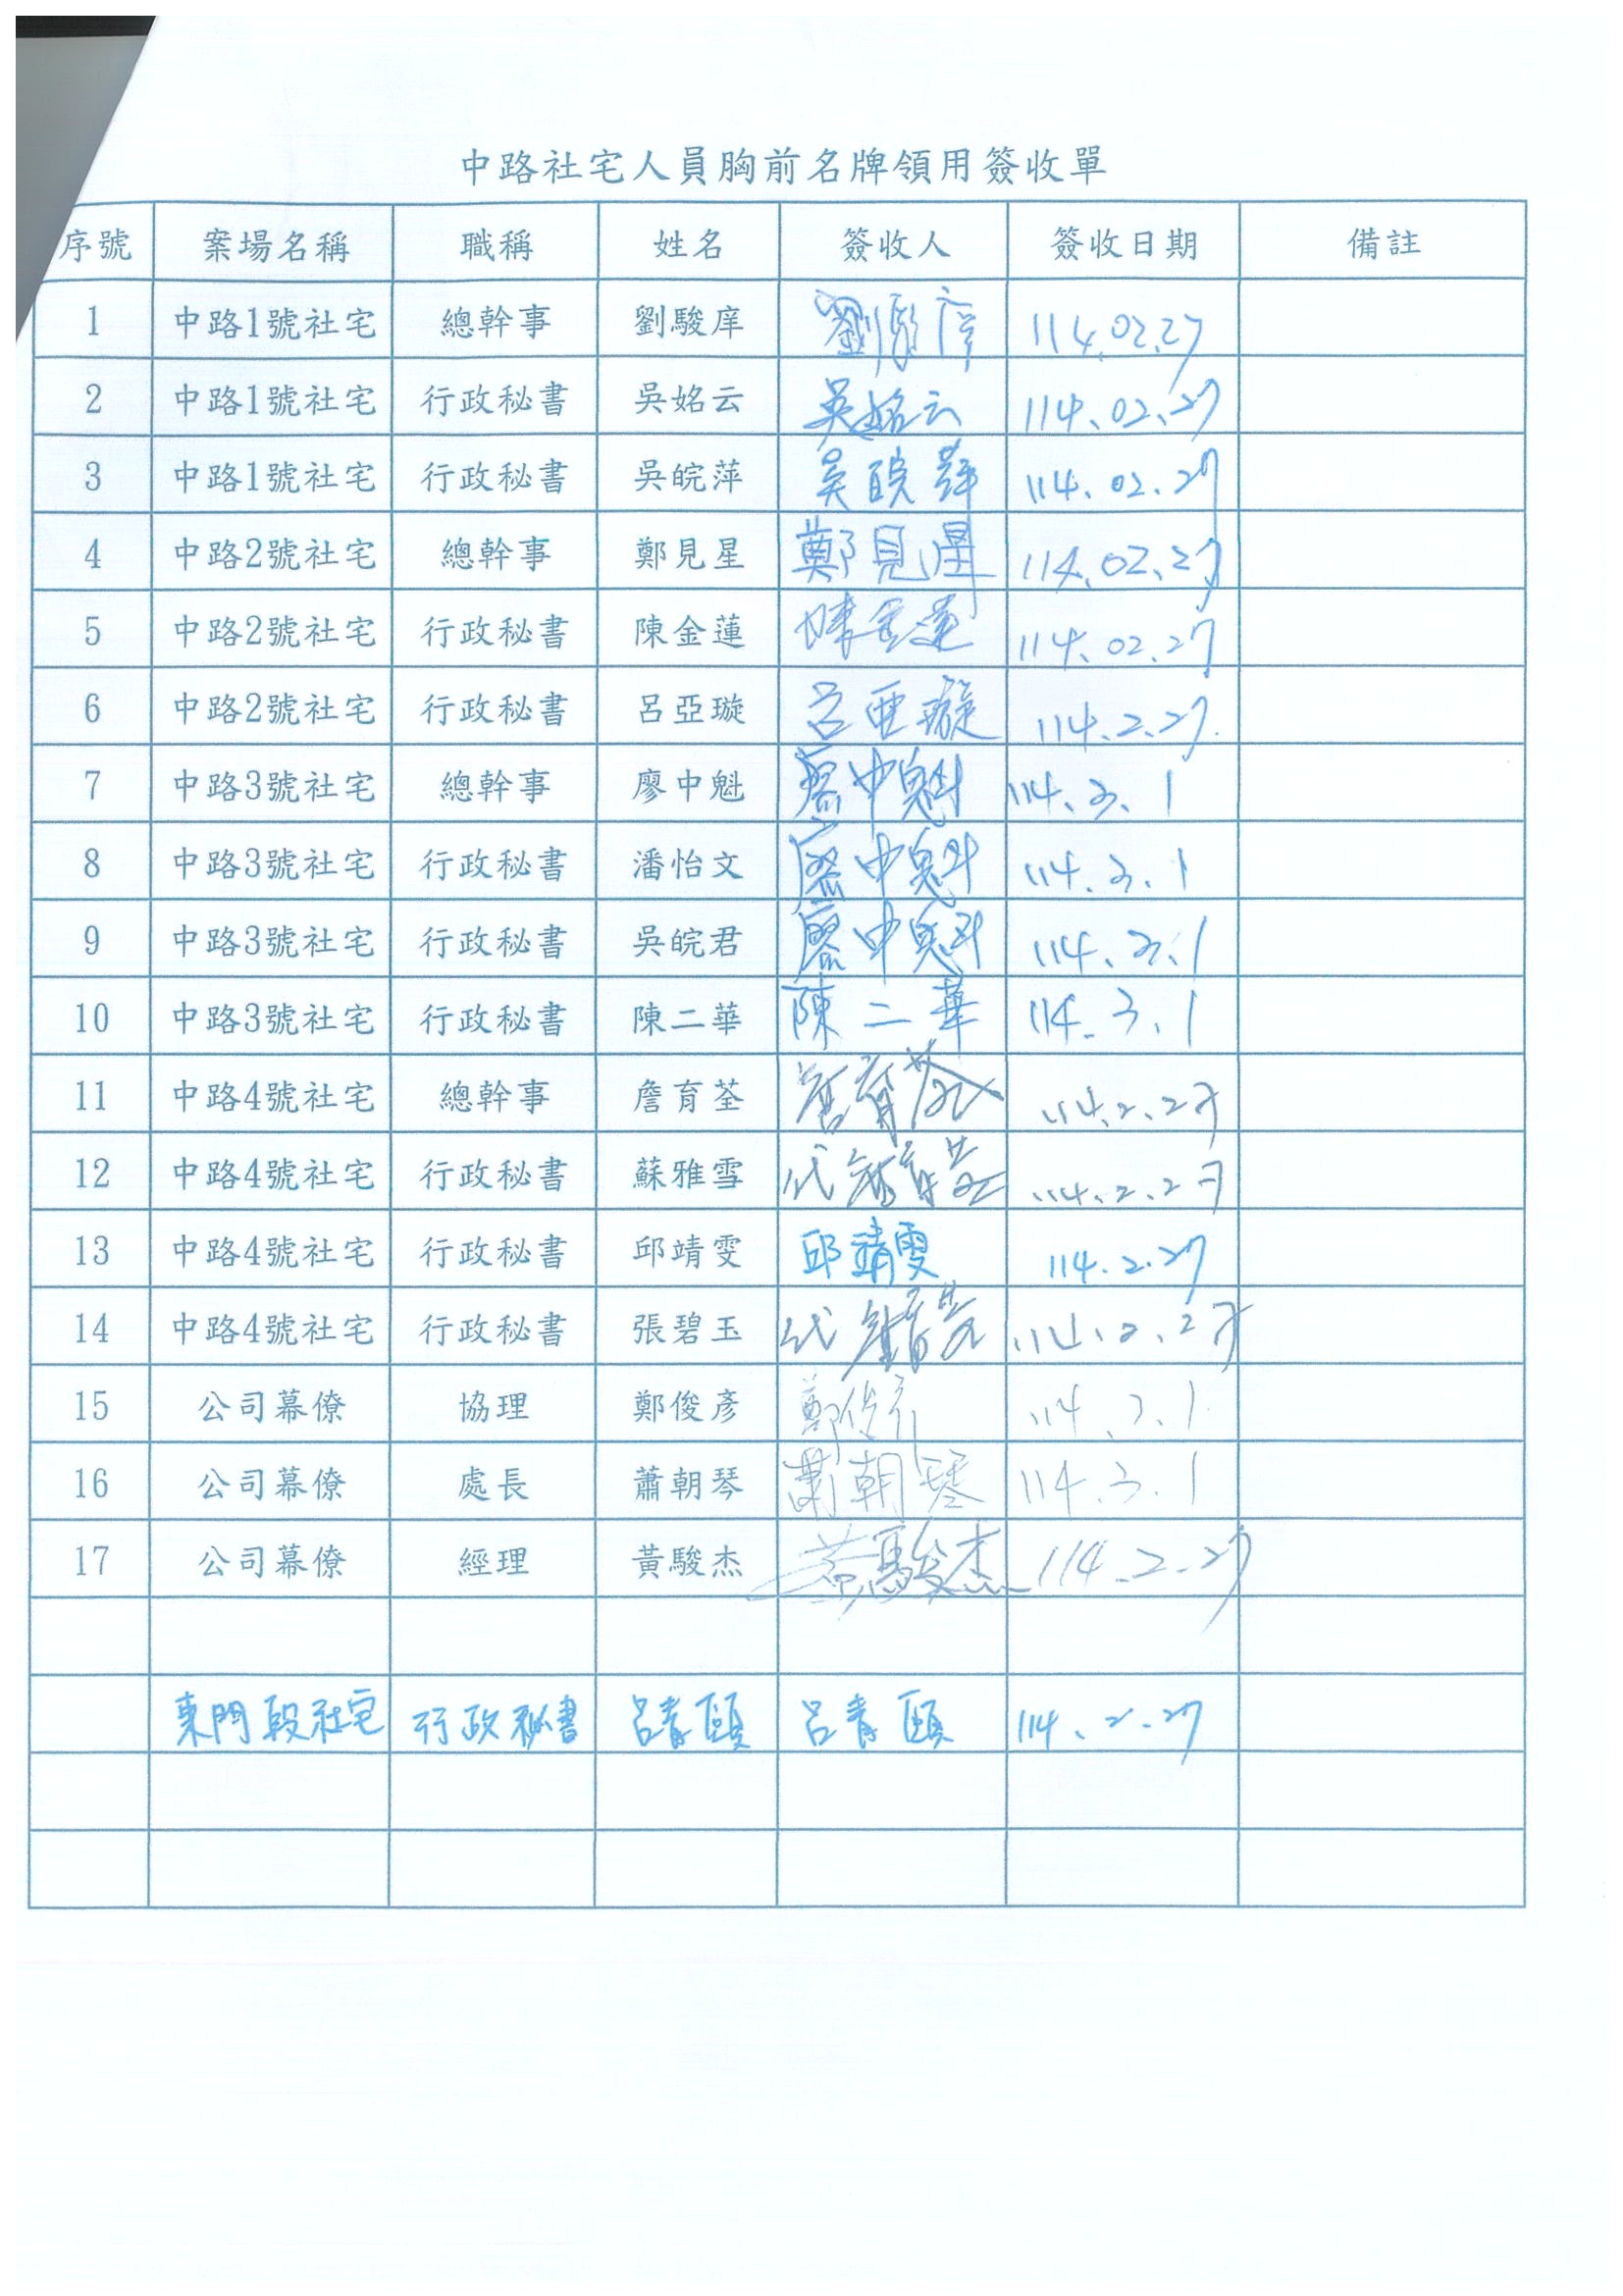 中路社宅人員胸前名牌領用簽收單
序號 案場名稱 職稱 姓名 簽收人 簽收日期 備註
1 中路1號社宅 總幹事 劉駿庠 劉駿庠 114.02.27
2 中路1號社宅 行政秘書 吳姳云 吳姳云 114.02.27
3 中路1號社宅 行政秘書 吳皖萍 吳皖萍 114.02.27
4 中路2號社宅 總幹事 鄭見星 鄭見星 114.02.27
5 中路2號社宅 行政秘書 陳金蓮 陳金蓮 114.02.27
6 中路2號社宅 行政秘書 呂亞璇 呂亞璇 114.2.27.
7 中路3號社宅 總幹事 廖中魁 廖中魁 114.3.1
8 中路3號社宅 行政秘書 潘怡文 廖中魁 114.3.1
9 中路3號社宅 行政秘書 吳皖君 廖中魁 114.3.1
10 中路3號社宅 行政秘書 陳二華 陳二華 114.3.1
11 中路4號社宅 總幹事 詹育荃 詹育荃 114.2.27
12 中路4號社宅 行政秘書 蘇雅雪 代詹育荃 114.2.27
13 中路4號社宅 行政秘書 邱靖雯 邱靖雯 114.2.27
14 中路4號社宅 行政秘書 張碧玉 代詹育荃 114.2.27
15 公司幕僚 協理 鄭俊彥 鄭俊彥 114.3.1
16 公司幕僚 處長 蕭朝琴 蕭朝琴 114.3.1
17 公司幕僚 經理 黃駿杰 黃駿杰 114.2.27
東門段社宅 行政秘書 呂青頤 呂青頤 114.2.27